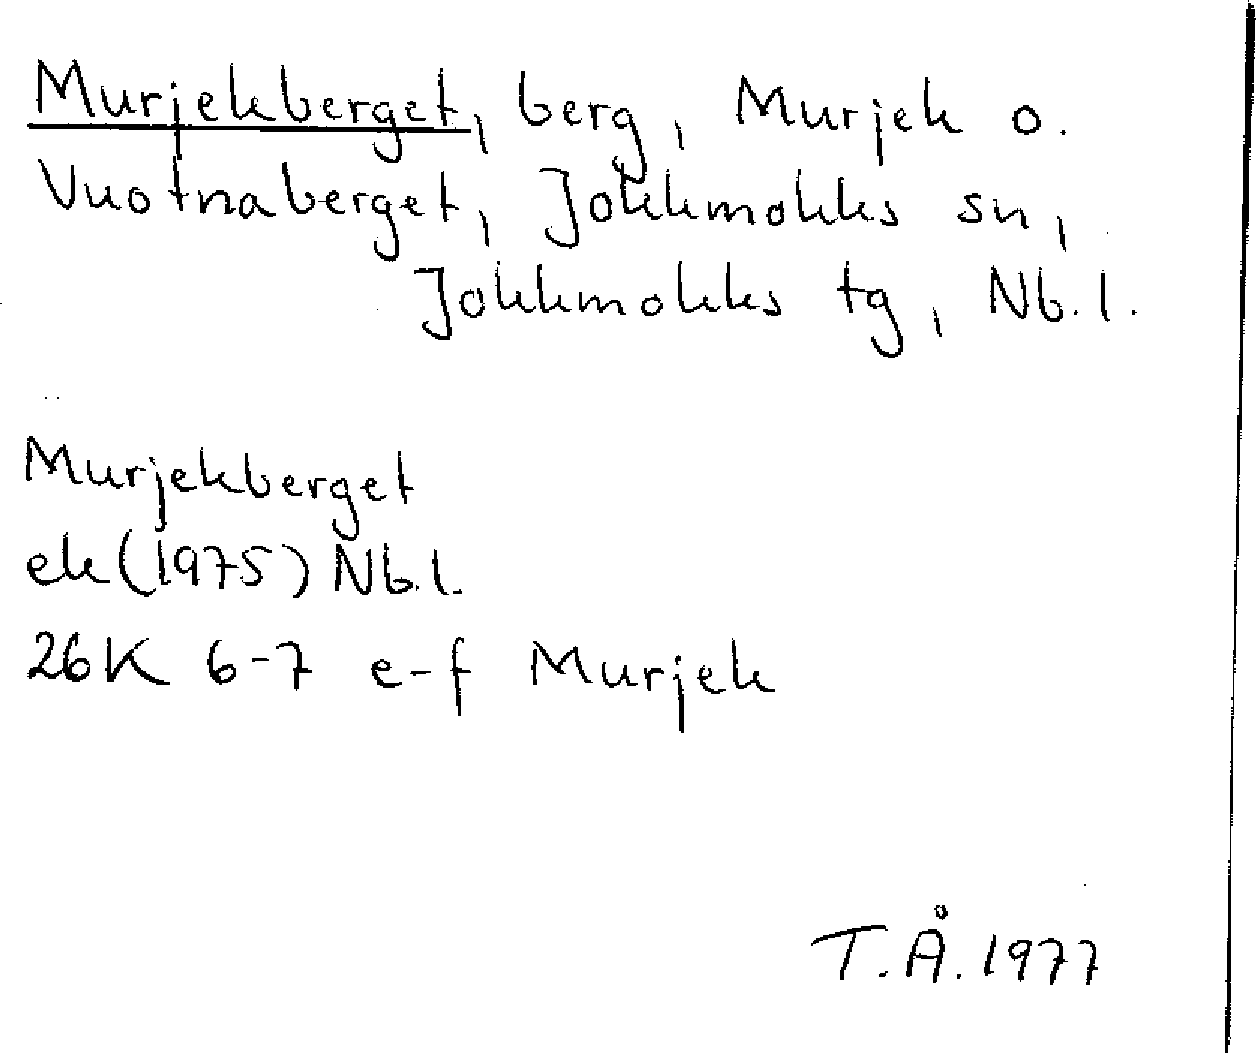 Murjekberget, berg, Murjek o.
Vuotnaberget, Jokkmokks sn,
Jokkmokks tg, Nb.l.
Murjekberget
ek(1975) Nb.l.
26K 6-7 e-f Murjek
T.Å.1977